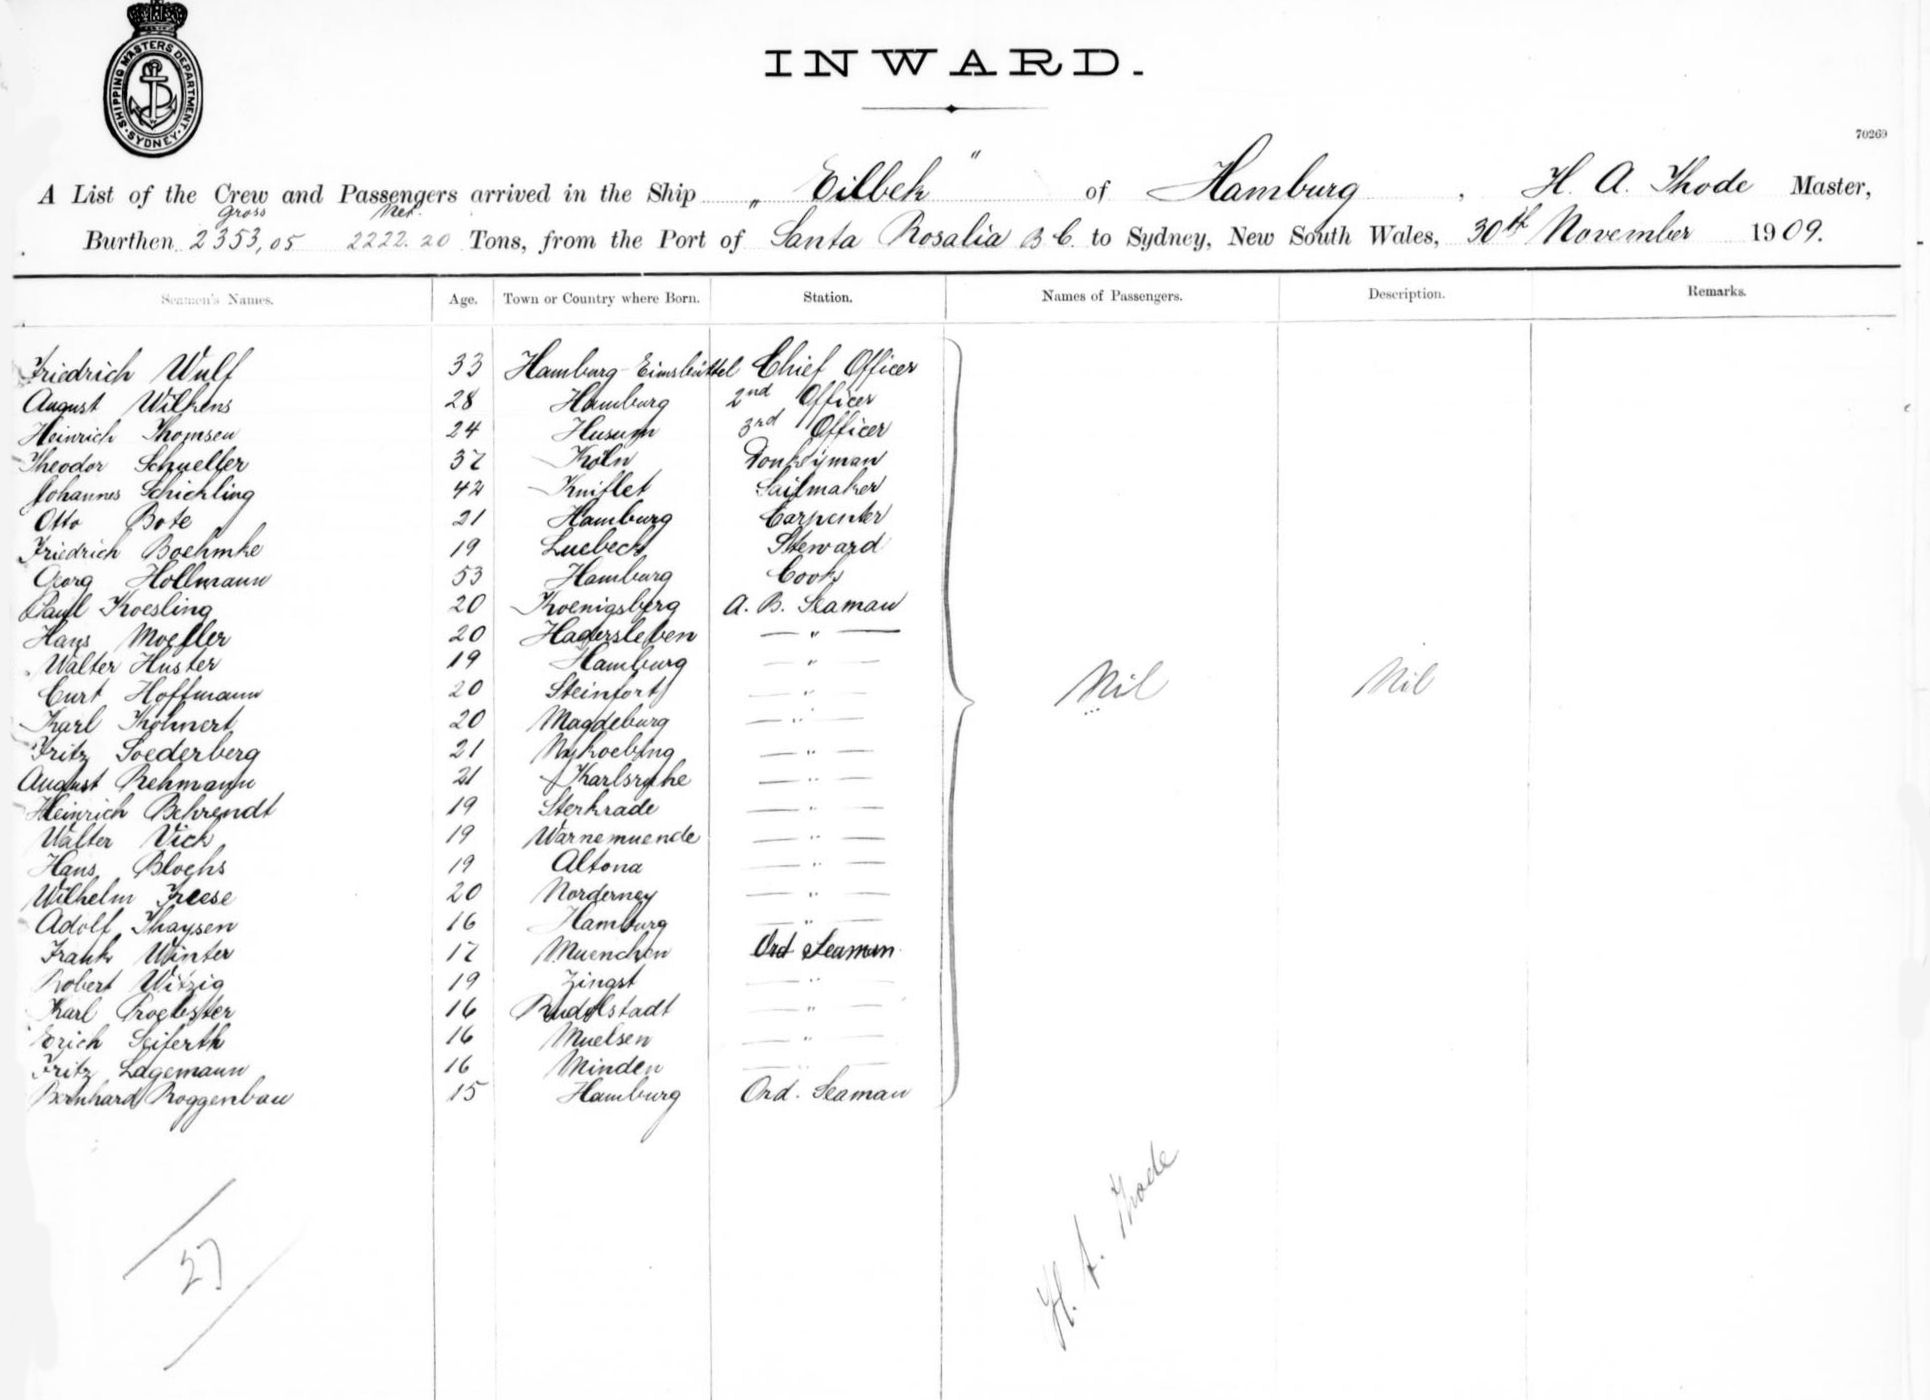 SHIPPING MASTERS DEPARTMENT · SYDNEY ·
INWARD.
70269
A List of the Crew and Passengers arrived in the Ship „ Eilbek " of Hamburg , H. A. Thode Master,
Gross Net.
Burthen 2353,05 2222.20 Tons, from the Port of Santa Rosalia B C. to Sydney, New South Wales, 30th November 1909.
Seamen's Names. Age. Town or Country where Born. Station. Names of Passengers. Description. Remarks.
Friedrich Wulf 33 Hamburg-Eimsbüttel Chief Officer
August Wilkens 28 Hamburg 2nd Officer
Heinrich Thomsen 24 Husum 3rd Officer
Theodor Schueller 37 Köln Donkeyman
Johannes Schickling 42 Sailmaker
Otto Bote 21 Hamburg Carpenter
Friedrich Boehmke 19 Luebeck Steward
Georg Hollmann 53 Hamburg Cook
Paul Koesling 20 Koenigsberg A. B. Seaman
Hans Moeller 20 Hadersleben — " —
Walter Huster 19 Hamburg — " —
Curt Hoffmann 20 Steinfort — " — Nil Nil
Karl Köhnert 20 Magdeburg — " —
Fritz Soederberg 21 Nykoebing — " —
August Rehmann 21 Karlsruhe — " —
Heinrich Behrendt 19 Sterkrade — " —
Walter Vick 19 Warnemuende — " —
Hans Bloehs 19 Altona — " —
Wilhelm Freese 20 Norderney — " —
Adolf Thaysen 16 Hamburg — " —
Frank Winter 17 Muenchen Ord Seaman
Robert Witzig 19 Zingst — " —
Karl Proebster 16 Rudolstadt — " —
Erich Seiferth 16 Muelsen — " —
Fritz Lagemann 16 Minden — " —
Bernhard Roggenbau 15 Hamburg Ord. Seaman
27
H. A. Thode